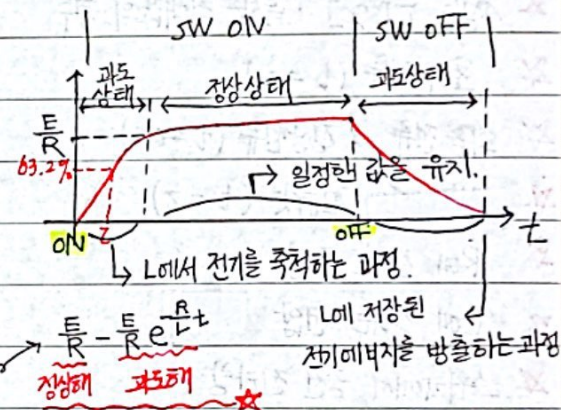 SW ON
SW OFF
과도
상태
정상상태
과도상태
E/R
63.2%
→ 일정한 값을 유지.
ON
τ
OFF
t
→ L에서 전기를 축척하는 과정.
L에 저장된
전기에너지를 방출하는과정
E/R - E/R e^{-R/L t}
정상해
과도해